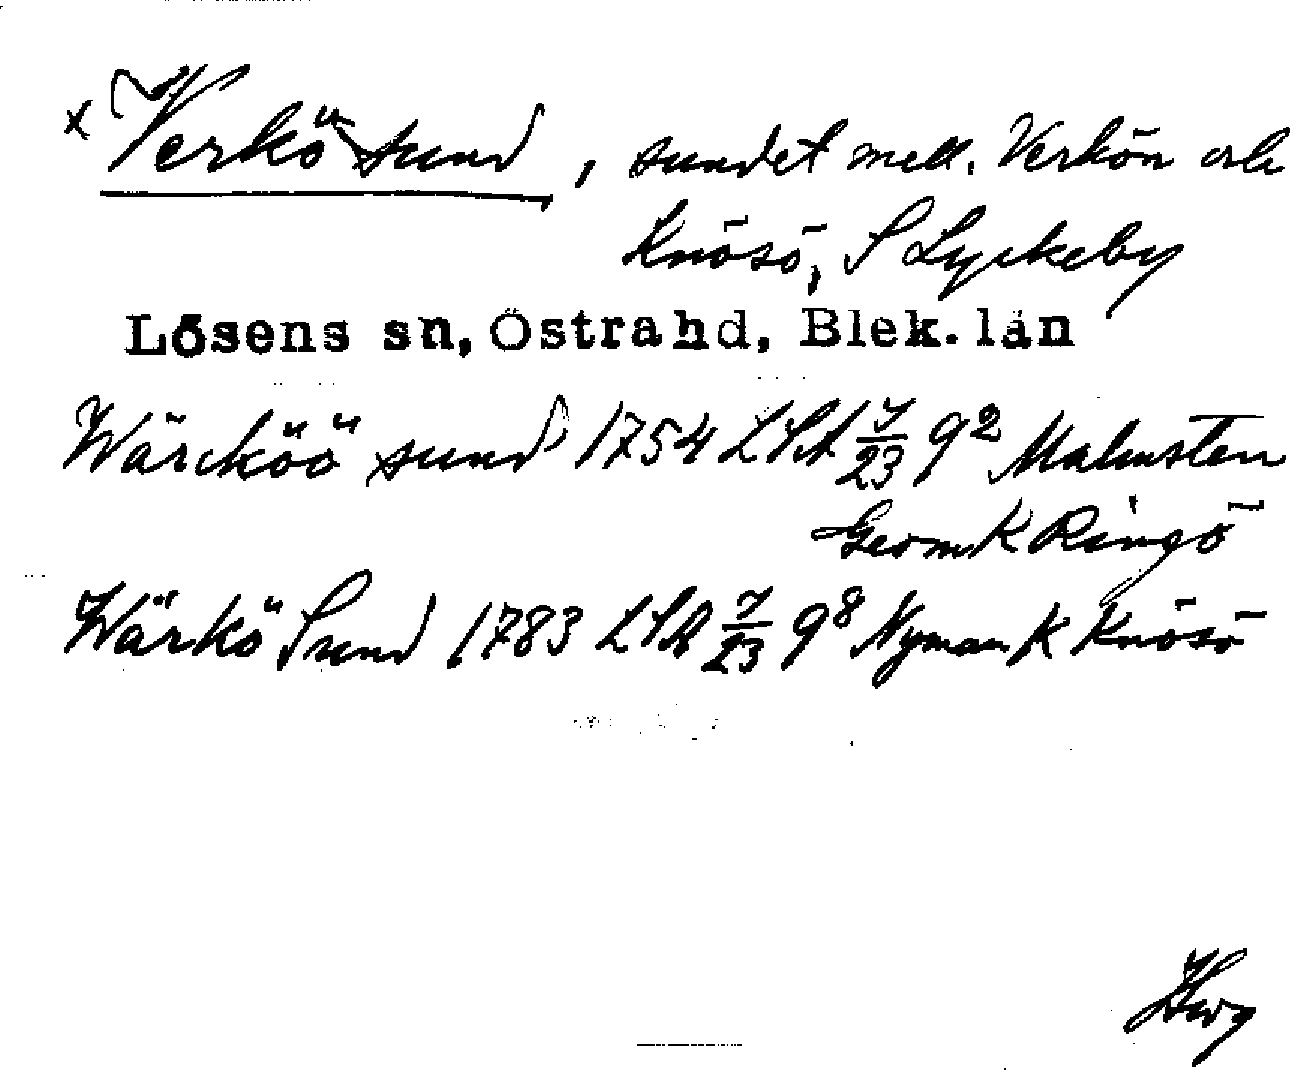 x Verkö sund, sundet mell. Verkön och
Knösö, S Lyckeby
Lösens sn, Östra hd, Blek. län
Wärcköö sund 1754 LSA 7/23 9² Malmsten
Geom K Ringö
Wärkö Sund 1783 LSA 7/23 9⁸ Nyman K Knösö